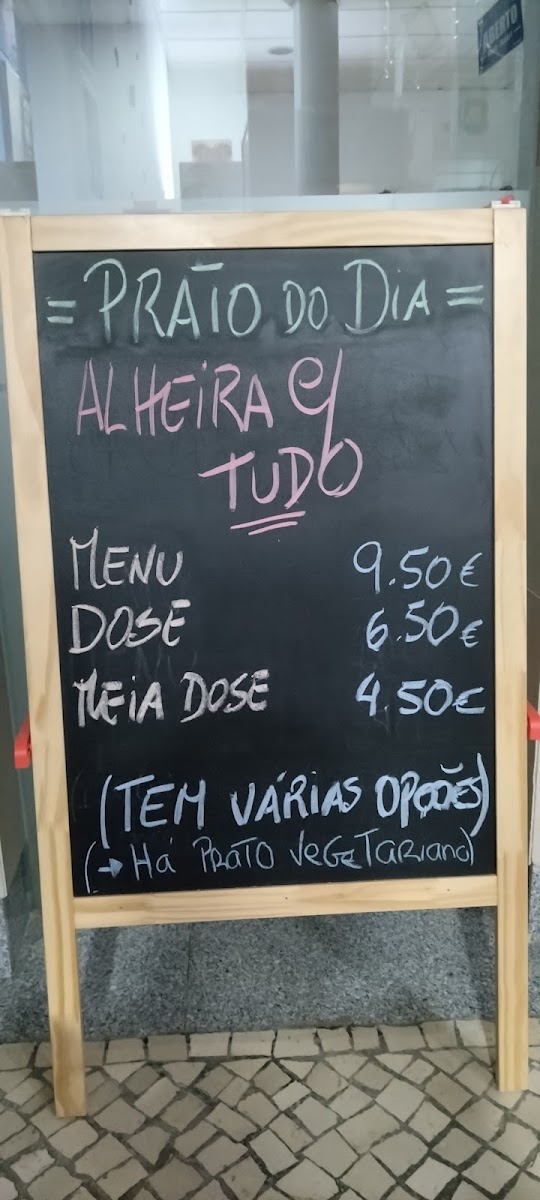 ABERTO
= PRATO DO DIA =
ALHEIRA C/
TUDO
MENU 9.50€
DOSE 6.50€
MEIA DOSE 4.50€
(TEM VÁRIAS OPÇÕES)
(→ HÁ PRATO VEGETARIANO)